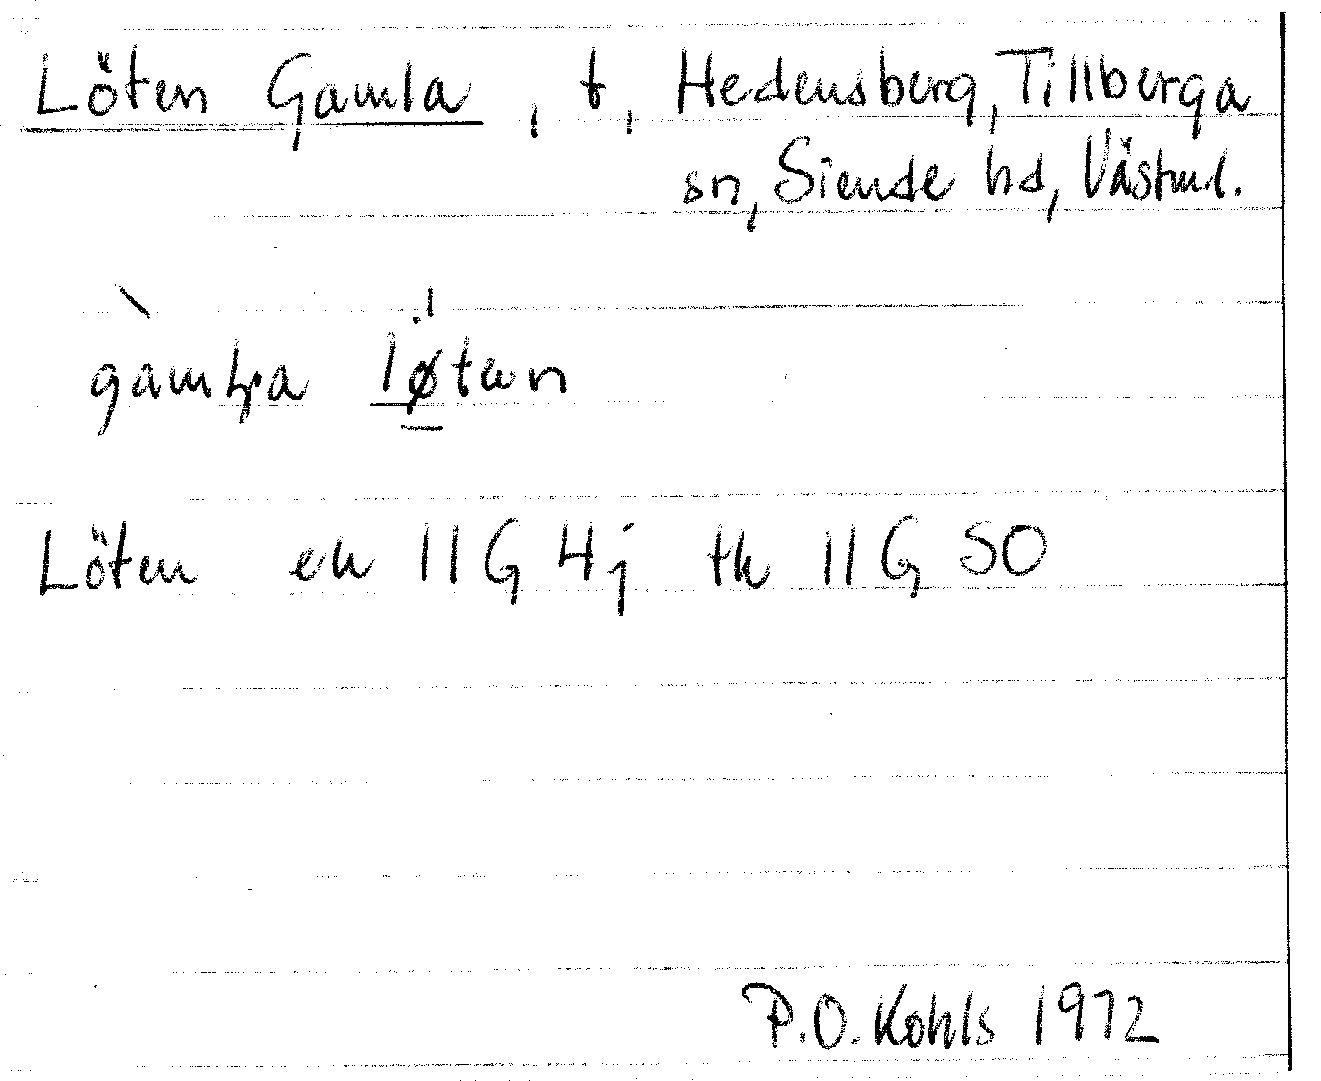 Löten Gamla, t, Hedensberg, Tillberga
sn, Siende hd, Västml.
gamɫa løtæn
Löten ek 11 G 4j tk 11 G SO
P.O. Kohls 1972